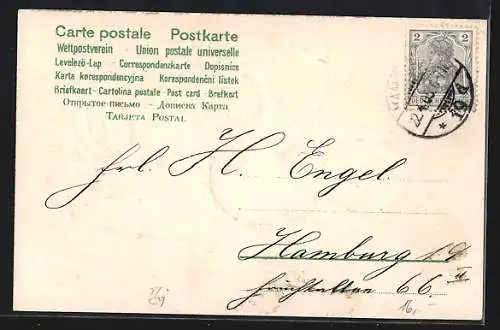 Carte postale Postkarte
Weltpostverein - Union postale universelle
Levelező-Lap - Correspondenzkarte Dopisnice
Karta korespondencyjna Korespondenční lístek
Briefkaart - Cartolina postale - Post card - Brefkort
Открытое-письмо - Дописна Карта
Tarjeta Postal
2 2
22
19 d
Frl. H. Engel
Hamburg 19
II
66
16,-